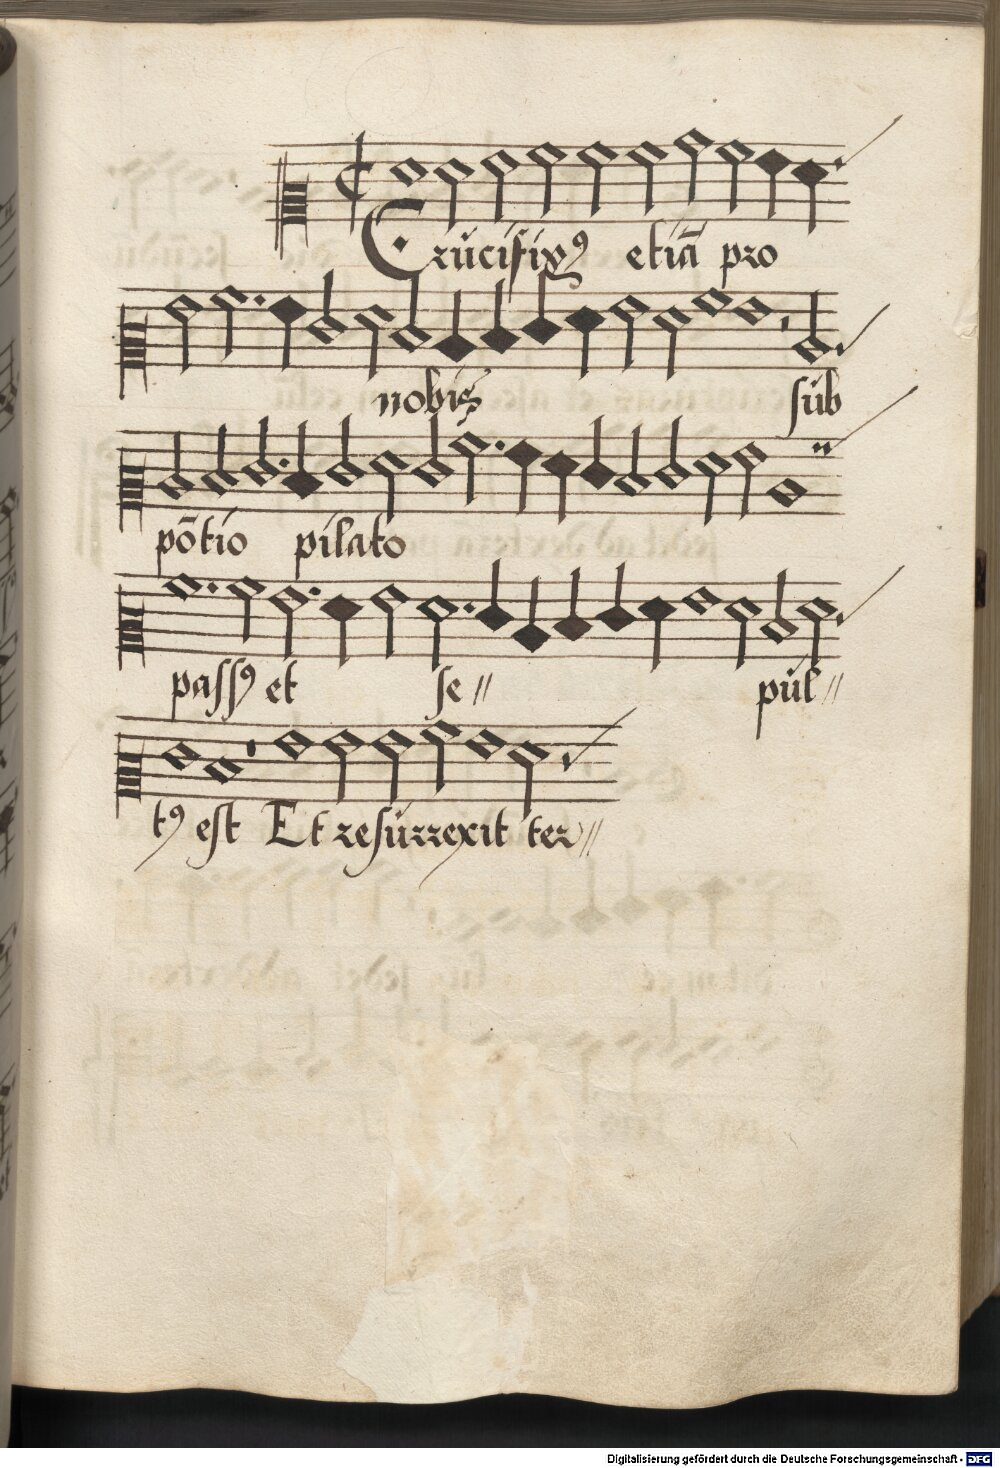 Crucifixꝰ etiā pro
nobis sub
pōtio pilato
passꝰ et se // pul //
tꝰ est Et resurrexit ter //
Digitalisierung gefördert durch die Deutsche Forschungsgemeinschaft - DFG